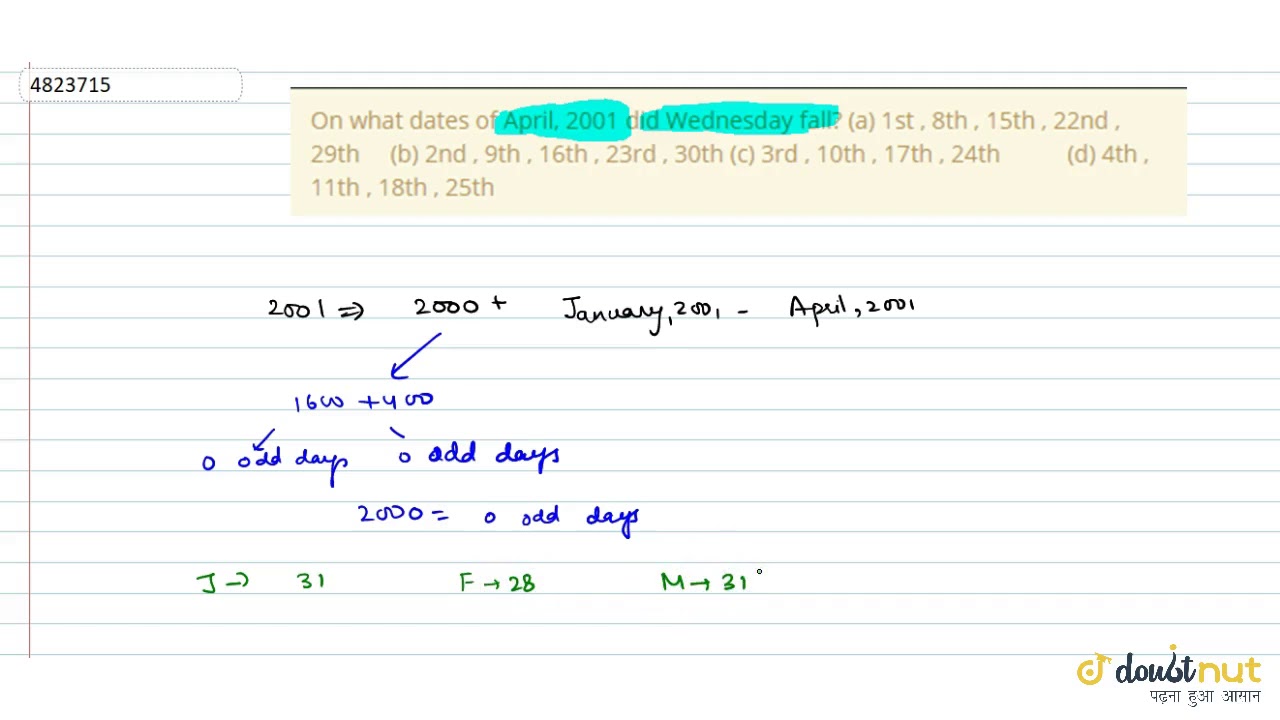 4823715
On what dates of April, 2001 did Wednesday fall? (a) 1st , 8th , 15th , 22nd ,
29th (b) 2nd , 9th , 16th , 23rd , 30th (c) 3rd , 10th , 17th , 24th (d) 4th ,
11th , 18th , 25th
2001 ⇒ 2000 + January, 2001 - April, 2001
1600 + 400
0 odd days 0 odd days
2000 = 0 odd days
J → 31 F → 28 M → 31
doubtnut
पढ़ना हुआ आसान